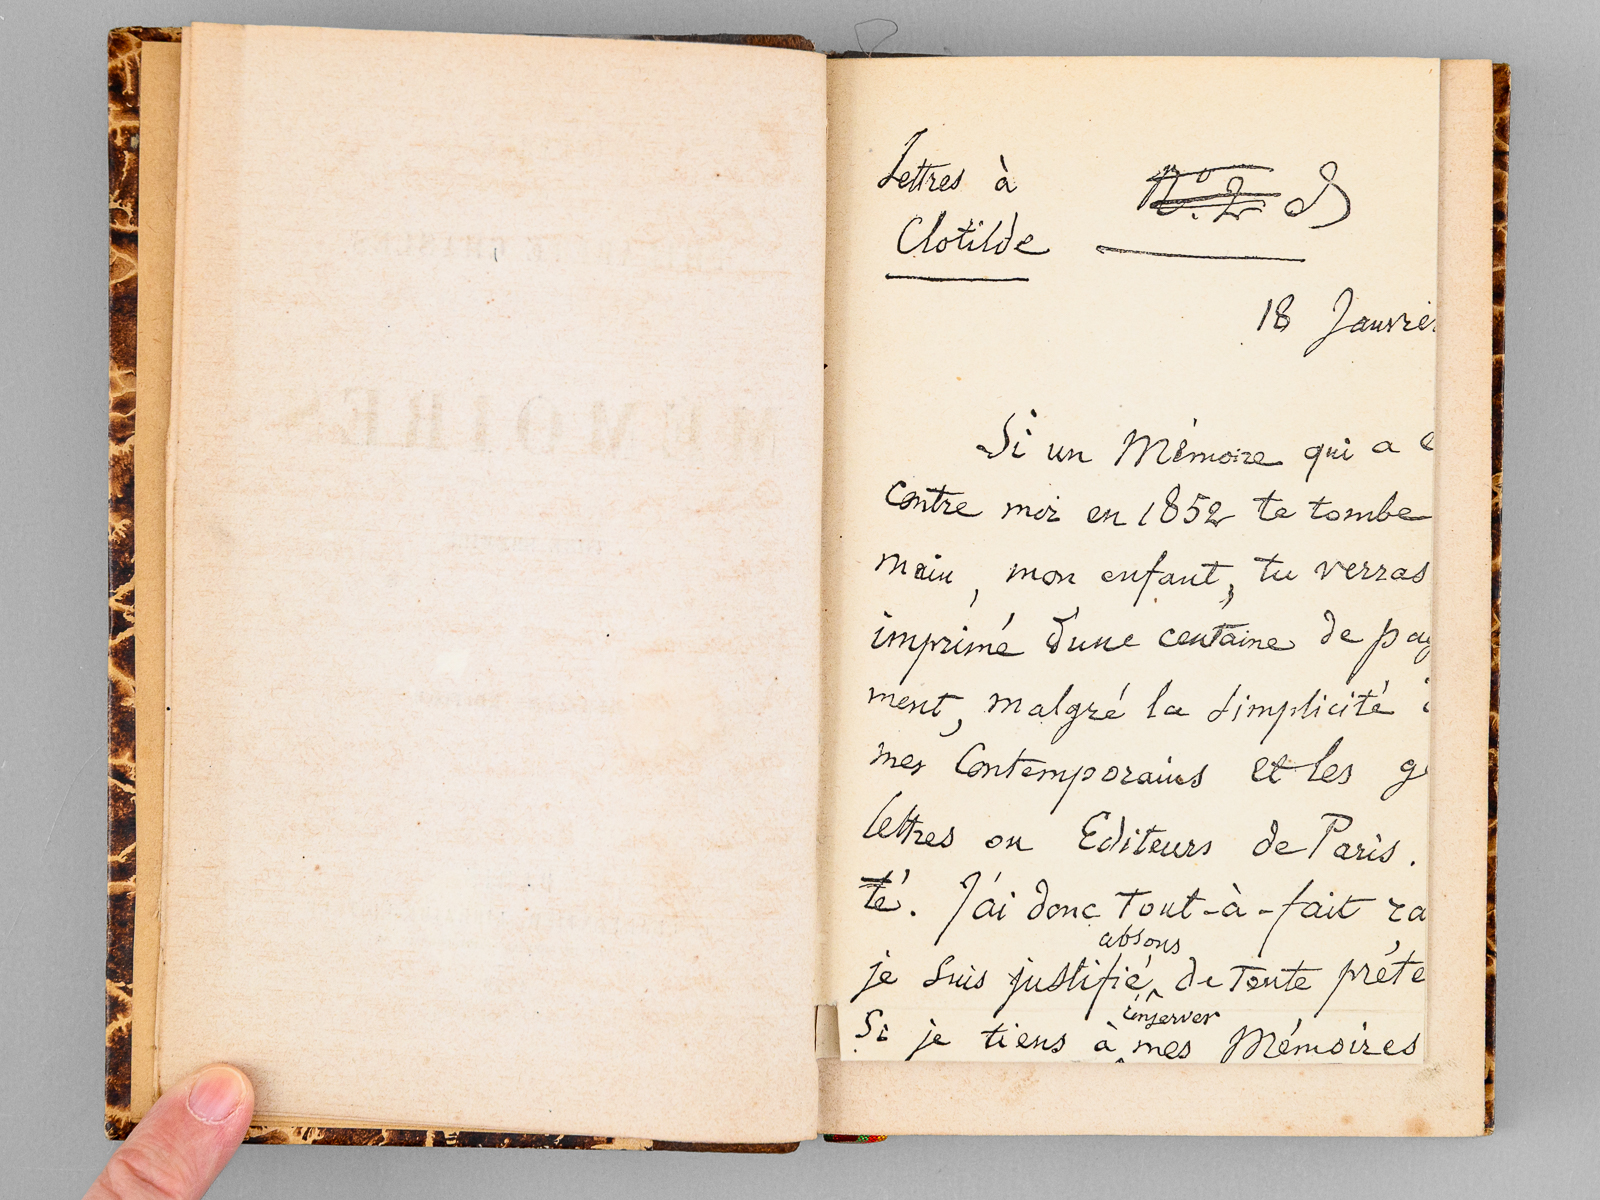 Lettres à
Clotilde
N.º 2
18 Janvier
Si un Mémoire qui a
contre moi en 1852 te tombe
main, mon enfant, tu verras
imprimé d'une centaine de pag
ment, malgré la simplicité
mes Contemporains et les g
lettres ou Editeurs de Paris.
té. J'ai donc tout-à-fait ra
absous
je suis justifié, de toute préte
conserver
Si je tiens à mes Mémoires
MÉMOIRES